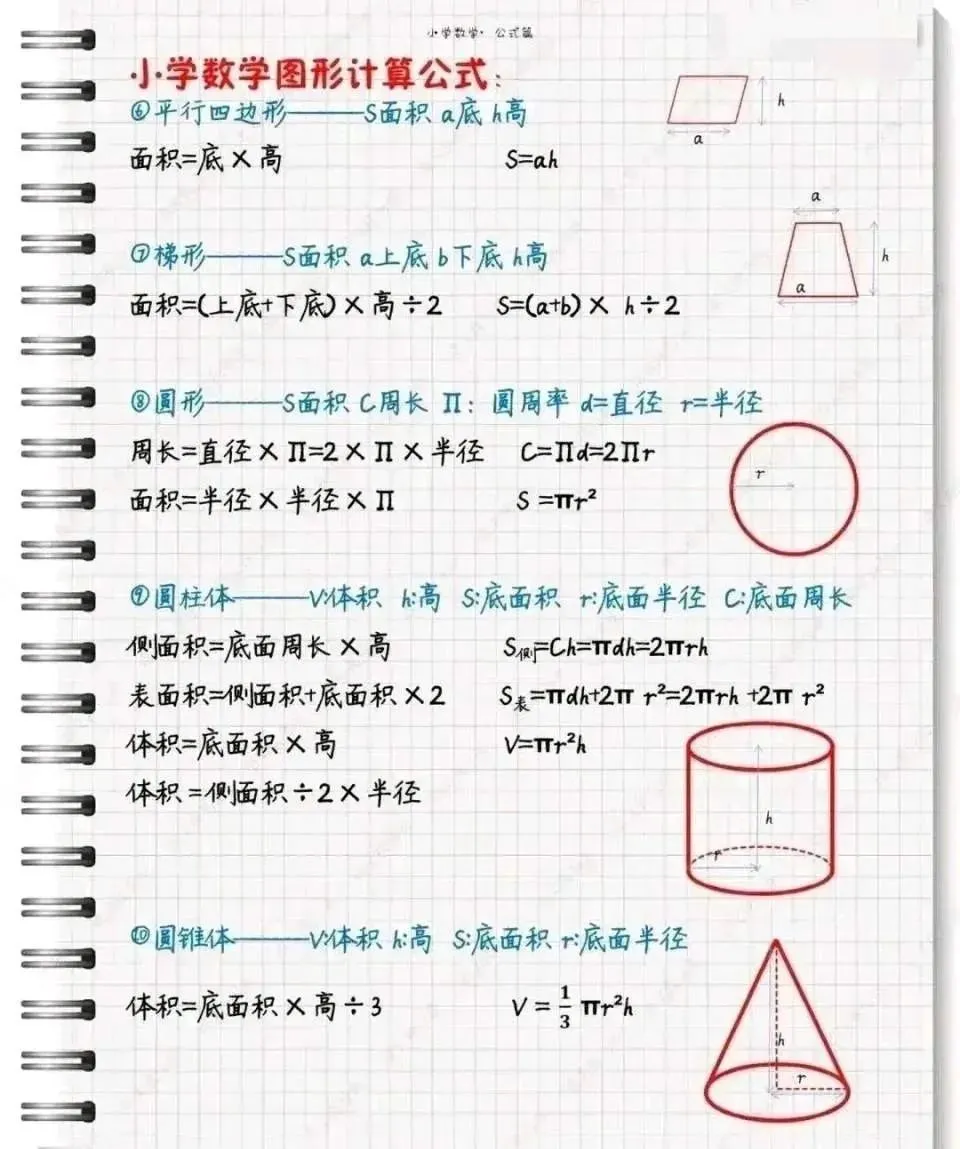 小学数学· 公式篇
小学数学图形计算公式：
⑥平行四边形———S面积 a底 h高
面积=底×高 S=ah
h
a
⑦梯形———S面积 a上底 b下底 h高
面积=(上底+下底)×高÷2 S=(a+b)× h÷2
a
h
a
⑧圆形———S面积 C周长 ∏：圆周率 d=直径 r=半径
周长=直径×∏=2×∏×半径 C=∏d=2∏r
面积=半径×半径×∏ S =πr²
r
⑨圆柱体———V:体积 h:高 S:底面积 r:底面半径 C:底面周长
侧面积=底面周长×高 S侧=Ch=πdh=2πrh
表面积=侧面积+底面积×2 S表=πdh+2π r²=2πrh +2π r²
体积=底面积×高 V=πr²h
体积=侧面积÷2×半径
h
r
⑩圆锥体———V:体积 h:高 S:底面积 r:底面半径
体积=底面积×高÷3 V = 1/3 πr²h
h
r